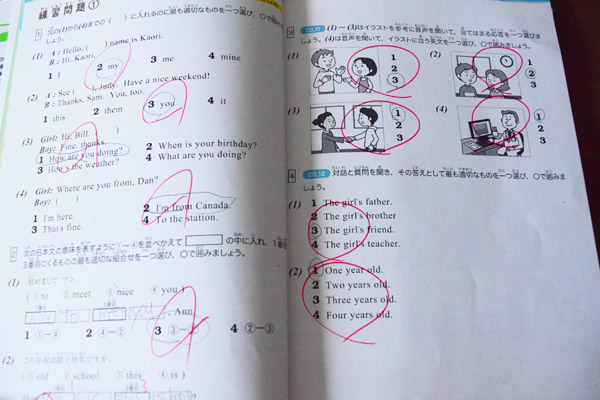 練習問題①
1 次の(1)から(4)までの( )に入れるのに最も適切なものを一つ選び、○で囲みましょう。
(1) A : Hello. ( ) name is Kaori.
B : Hi, Kaori.
1 I 2 my 3 me 4 mine
(2) A : See ( ), Judy. Have a nice weekend!
B : Thanks, Sam. You, too.
1 this 2 them 3 you 4 it
(3) Girl: Hi, Bill. ( )
Boy: Fine, thanks.
1 How are you doing? 2 When is your birthday?
3 How's the weather? 4 What are you doing?
(4) Girl: Where are you from, Dan?
Boy: ( )
1 I'm here. 2 I'm from Canada.
3 That's fine. 4 To the station.
2 次の日本文の意味を表すように①~④を並べかえて の中に入れ、1番目と
3番目にくるものの最も適切な組合せを一つ選び、○で囲みましょう。
(1) 初めまして アン。
① to ② meet ③ nice ④ you
to you , Ann
1 ①-④ 2 ④-② 3 ③- 4 ②-③
(2) この学校は創立何年ですか。
① old ② school ③ this ④ is
How
3 CD 11 (1)~(3)はイラストを参考に音声を聞いて、当てはまる応答を一つ選び
ましょう。(4)は音声を聞いて、イラストに合う英文を一つ選び、○で囲みましょう。
(1) 1 2 3
(2) 1 2 3
(3) 1 2 3
(4) 1 2 3
4 CD 12 対話と質問を聞き、その答えとして最も適切なものを一つ選び、○で囲みま
しょう。
(1) 1 The girl's father.
2 The girl's brother
3 The girl's friend.
4 The girl's teacher.
(2) 1 One year old.
2 Two years old.
3 Three years old.
4 Four years old.